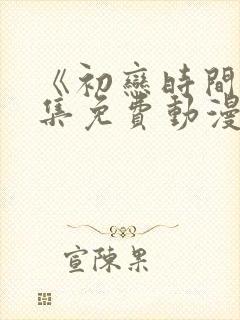 《初戀時間
集免費動漫
宣陳果